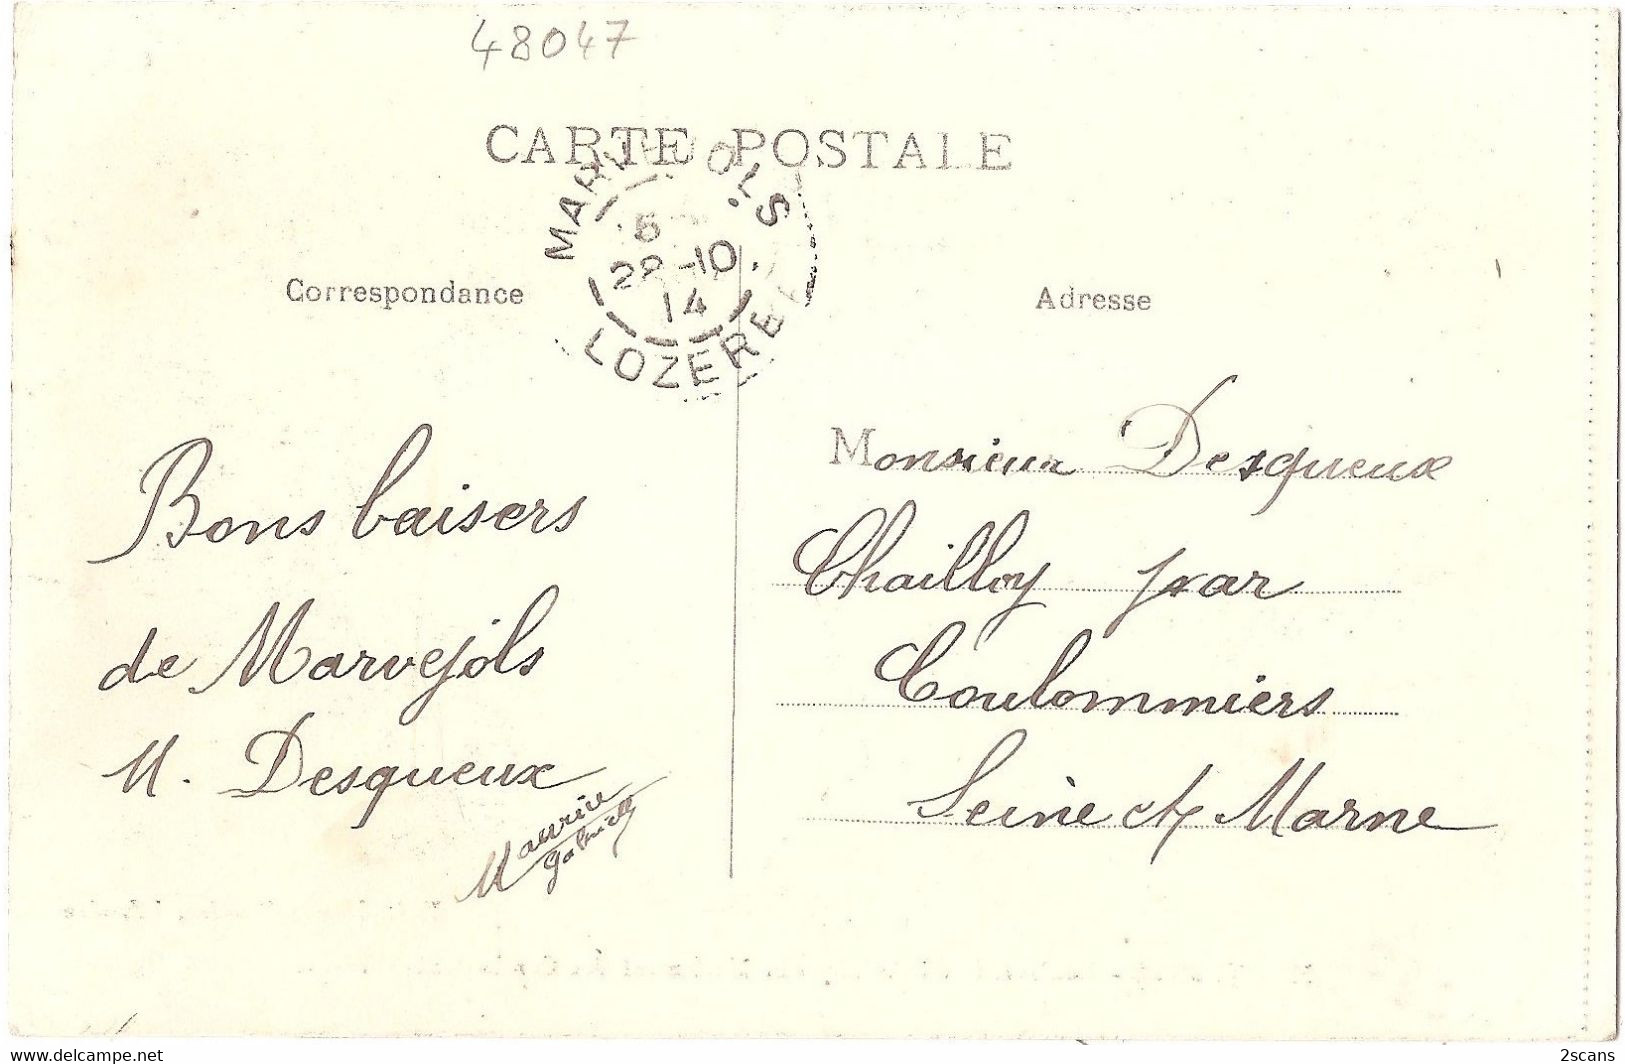 48047
CARTE POSTALE
MARVEJOLS
5
28-10
14
LOZERE
Correspondance
Adresse
Bons baisers
de Marvejols
M. Desqueux
Maurice
Gabrielle
Monsieur Desqueux
Chailly par
Coulommiers
Seine et Marne
www.delcampe.net
2scans